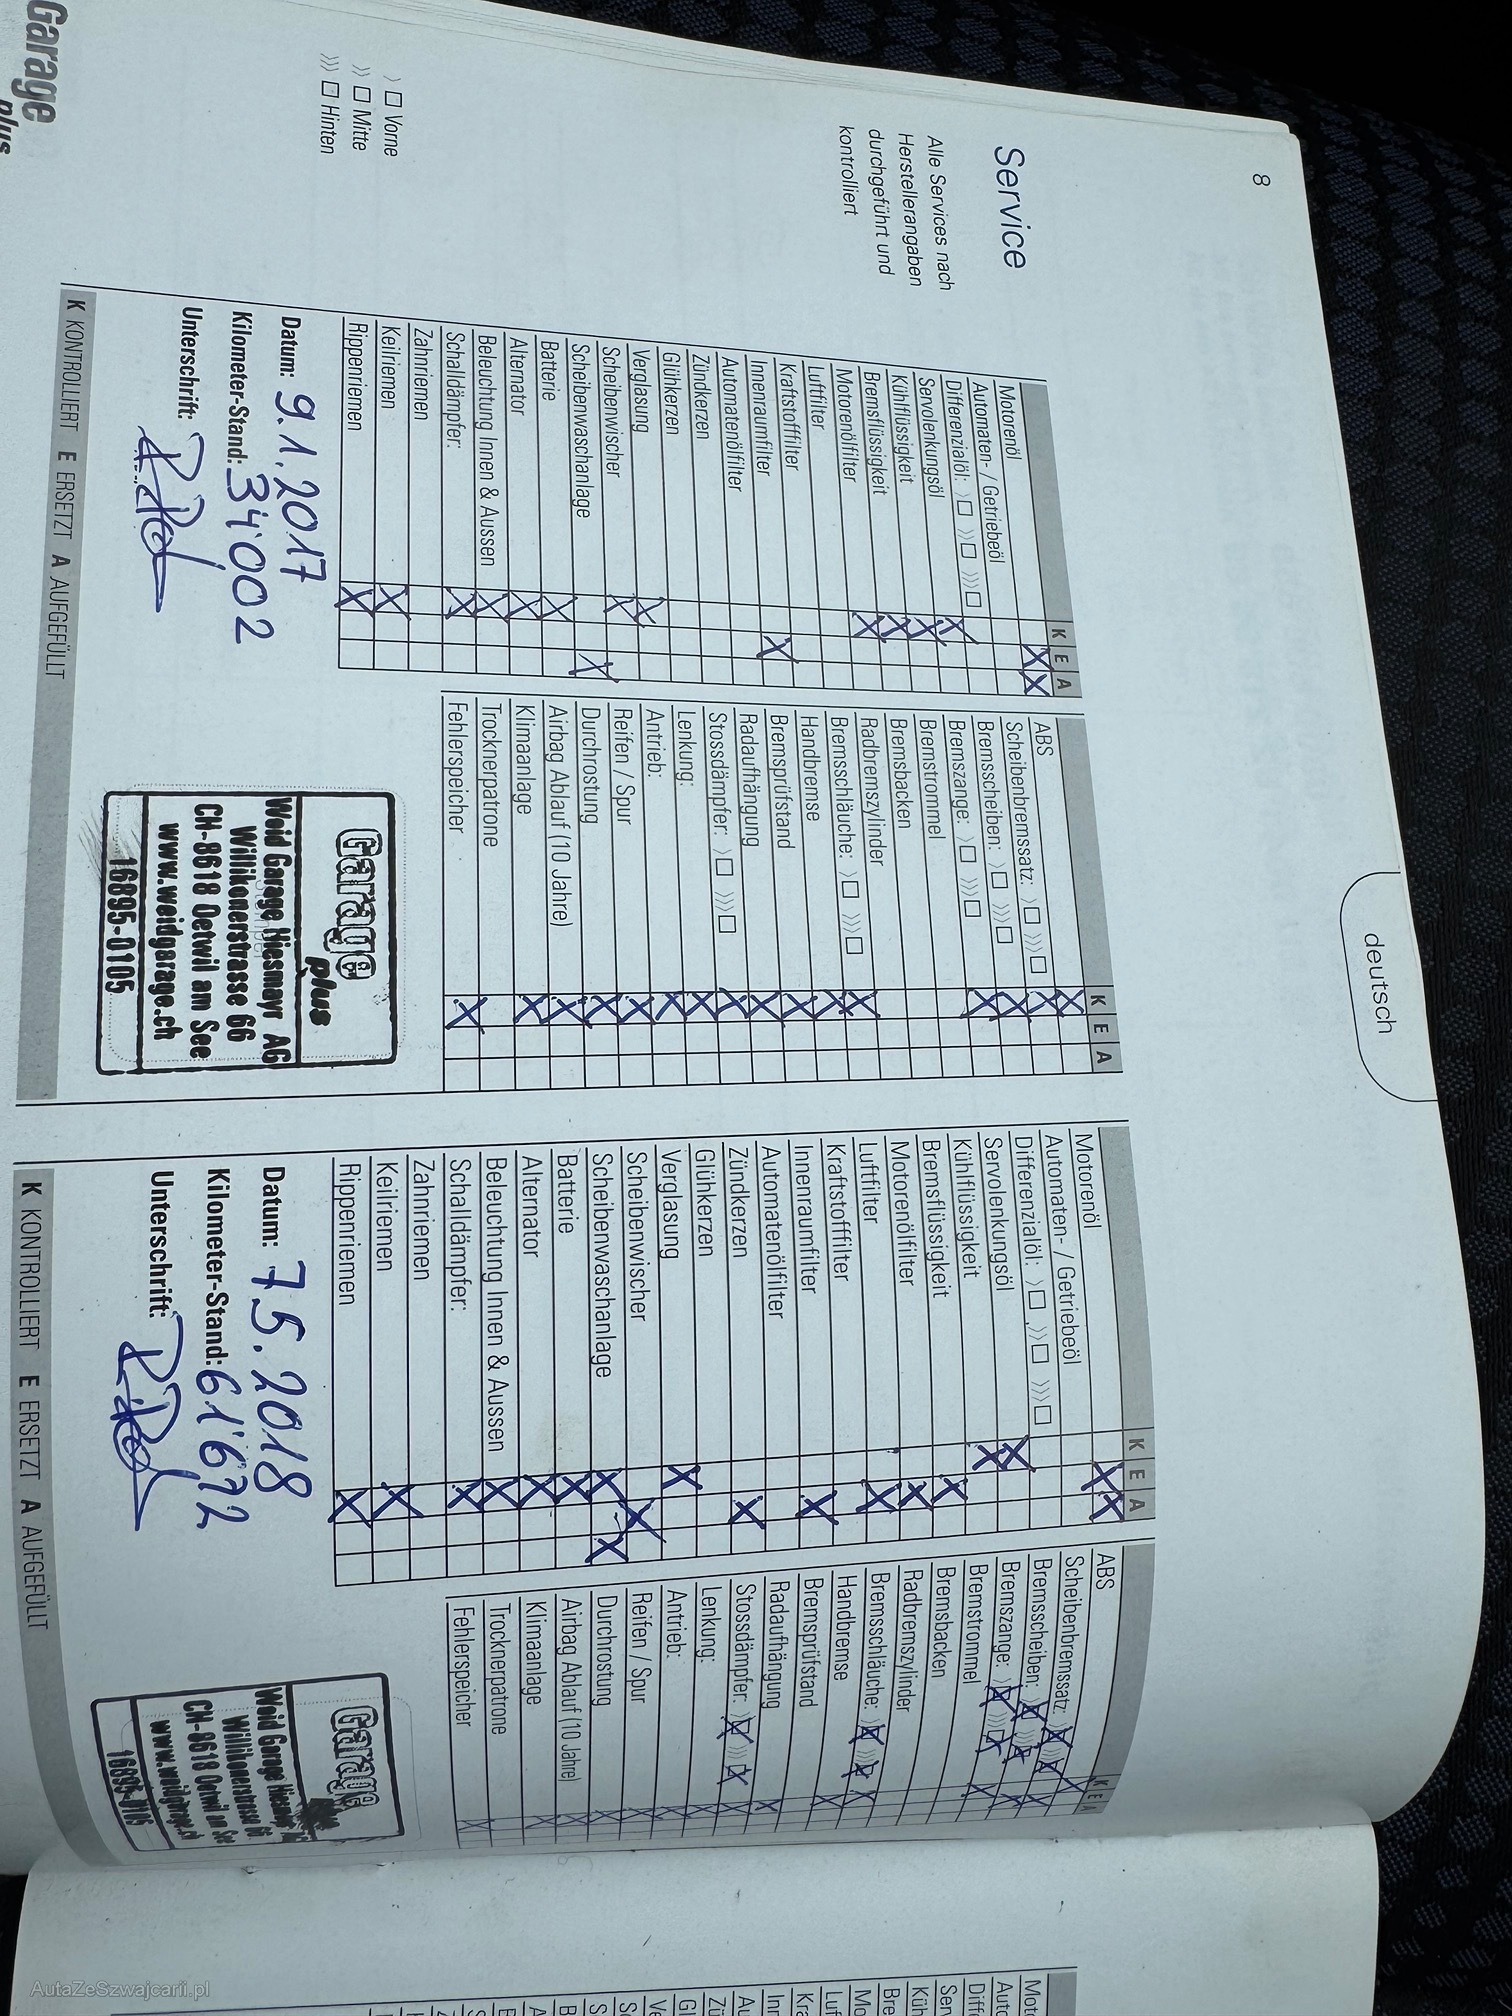 8
deutsch
Service
Alle Services nach
Herstellerangaben
durchgeführt und
kontrolliert
〉 □ Vorne
〉〉 □ Mitte
〉〉〉 □ Hinten
Garage
plus
K E A
Motorenöl X X
Automaten- / Getriebeöl
Differenzialöl: 〉□ 〉〉□ 〉〉〉□
Servolenkungsöl X
Kühlflüssigkeit X
Bremsflüssigkeit X
Motorenölfilter X
Luftfilter
Kraftstofffilter
Innenraumfilter X
Automatenölfilter
Zündkerzen
Glühkerzen
Verglasung X
Scheibenwischer X
Scheibenwaschanlage X
Batterie X
Alternator X
Beleuchtung Innen & Aussen X
Schalldämpfer: X
Zahnriemen
Keilriemen X
Rippenriemen X
Datum: 9.1.2017
Kilometer-Stand: 34'002
Unterschrift:
K E A
ABS X
Scheibenbremssatz: 〉□ 〉〉〉□ X
Bremsscheiben: 〉□ 〉〉〉□ X
Bremszange: 〉□ 〉〉〉□ X
Bremstrommel
Bremsbacken
Radbremszylinder
Bremsschläuche: 〉□ 〉〉〉□ X
Handbremse X
Bremsprüfstand X
Radaufhängung X
Stossdämpfer: 〉□ 〉〉〉□ X
Lenkung: X
Antrieb: X
Reifen / Spur X
Durchrostung X
Airbag Ablauf (10 Jahre) X
Klimaanlage X
Trocknerpatrone
Fehlerspeicher X
Garage
plus
Weid Garage Niesmayr AG
Willikonerstrasse 66
CH-8618 Oetwil am See
www.weidgarage.ch
16895-0105
K KONTROLLIERT E ERSETZT A AUFGEFÜLLT
K E A
Motorenöl X X
Automaten- / Getriebeöl
Differenzialöl: 〉□ 〉〉□ 〉〉〉□
Servolenkungsöl X
Kühlflüssigkeit X
Bremsflüssigkeit X
Motorenölfilter X
Luftfilter X
Kraftstofffilter
Innenraumfilter X
Automatenölfilter
Zündkerzen X
Glühkerzen
Verglasung X
Scheibenwischer X
Scheibenwaschanlage X X
Batterie X
Alternator X
Beleuchtung Innen & Aussen X
Schalldämpfer: X
Zahnriemen
Keilriemen X
Rippenriemen X
Datum: 7.5.2018
Kilometer-Stand: 61'672
Unterschrift:
K E A
ABS X
Scheibenbremssatz: 〉☒ 〉〉〉☒ X
Bremsscheiben: 〉☒ 〉〉〉☒ X
Bremszange: 〉☒ 〉〉〉☒ X
Bremstrommel
Bremsbacken
Radbremszylinder
Bremsschläuche: 〉☒ 〉〉〉☒ X
Handbremse X
Bremsprüfstand
Radaufhängung X
Stossdämpfer: 〉☒ 〉〉〉☒ X
Lenkung: X
Antrieb: X
Reifen / Spur X
Durchrostung X
Airbag Ablauf (10 Jahre) X
Klimaanlage X
Trocknerpatrone
Fehlerspeicher X
Garage
Weid Garage
Willikonerstrasse 66
CH-8618 Oetwil am See
www.weidgarage.ch
16895-0105
K KONTROLLIERT E ERSETZT A AUFGEFÜLLT
AutaZeSzwajcarii.pl